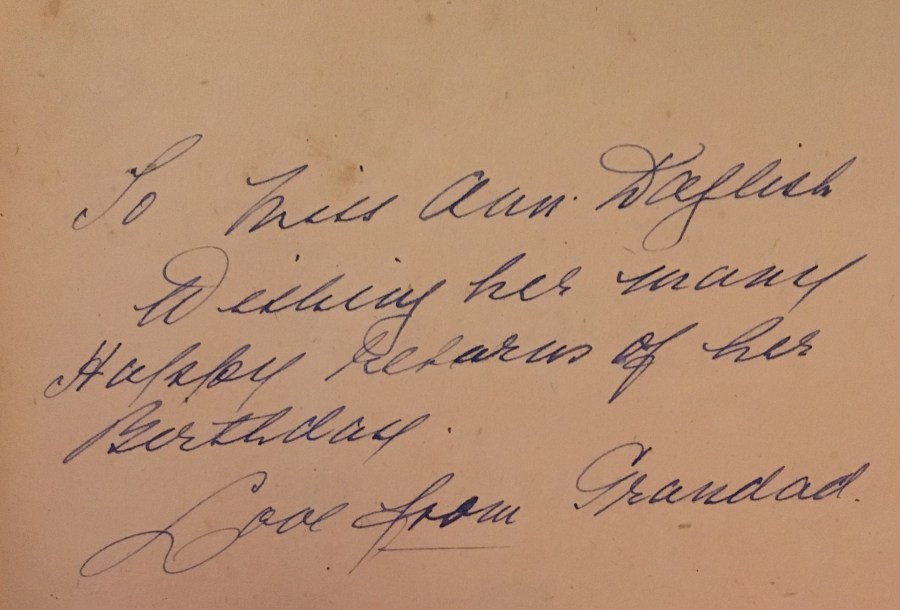 To Miss Ann. Daglish
Wishing her many
Happy Returns of her
Birthday.
Love from Grandad.